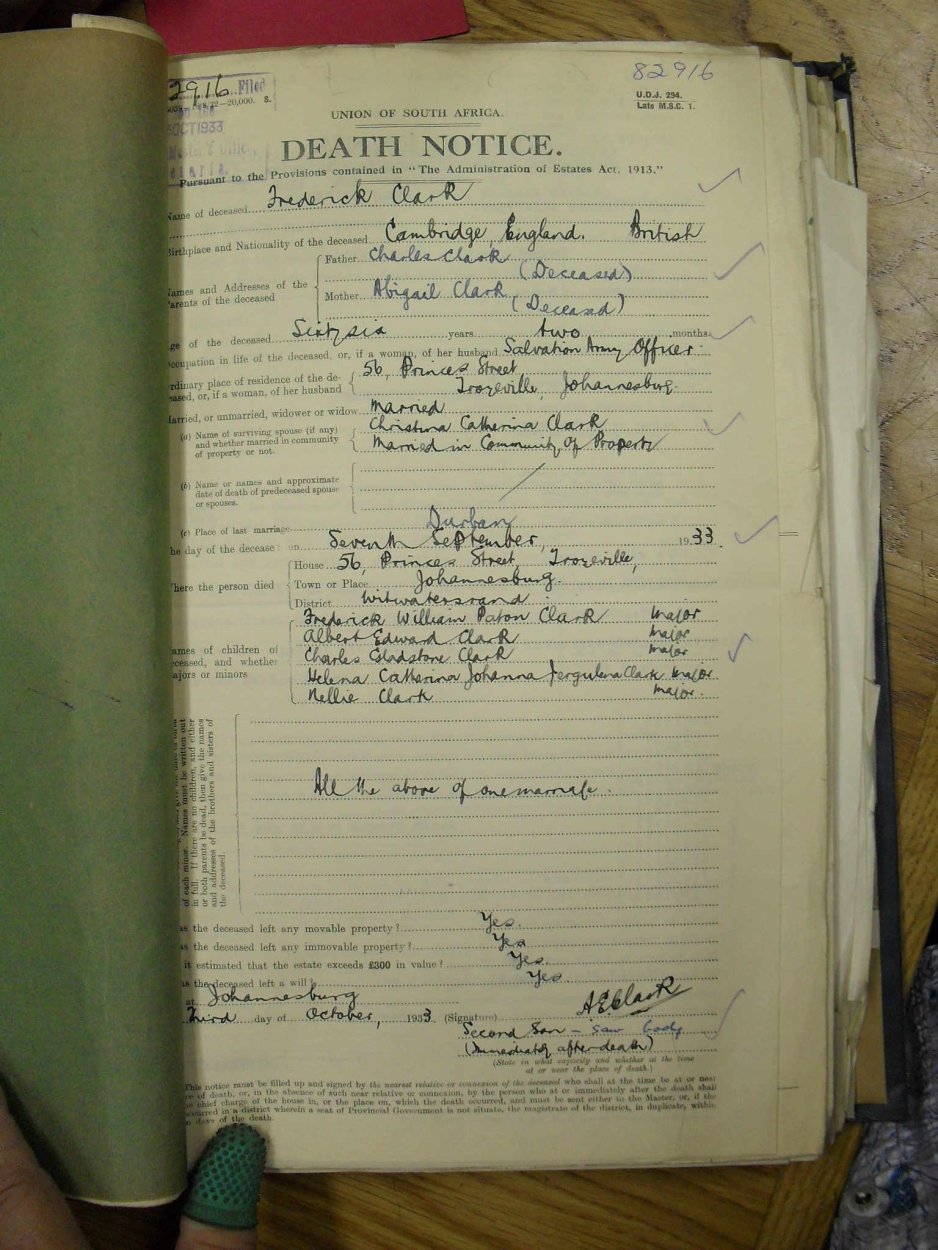 82916
2916 Filed
—20,000. S.
on the
OCT 1933
U.D.J. 294.
Late M.S.C. 1.
UNION OF SOUTH AFRICA.
DEATH NOTICE.
Pursuant to the Provisions contained in "The Administration of Estates Act, 1913."
Name of deceased Frederick Clark
Birthplace and Nationality of the deceased Cambridge, England. British
Names and Addresses of the
Parents of the deceased
Father Charles Clark
(Deceased)
Mother Abigail Clark
(Deceased)
ge of the deceased Sixty six years two months
ccupation in life of the deceased, or, if a woman, of her husband Salvation Army Officer
rdinary place of residence of the de-
eased, or, if a woman, of her husband
56, Princes Street
Troyeville, Johannesburg.
arried, or unmarried, widower or widow married
(a) Name of surviving spouse (if any)
and whether married in community
of property or not.
Christina Catherina Clark
Married in Community of Property
(b) Name or names and approximate
date of death of predeceased spouse
or spouses.
(c) Place of last marriage Durban
he day of the decease: on Seventh September, 1933
here the person died
House 56, Princes Street, Troyeville,
Town or Place Johannesburg.
District Witwatersrand
ames of children of
eceased, and whether
ajors or minors
Frederick William Paton Clark Major
Albert Edward Clark Major
Charles Gladstone Clark Major
Helena Catherina Johanna Clark Major
Nellie Clark Major.
of each minor. Names must be written out
in full. If there are no children, and either
or both parents be dead, then give the names
and addresses of the brothers and sisters of
the deceased.
All the above of one marriage.
as the deceased left any movable property? Yes.
as the deceased left any immovable property? Yes
it estimated that the estate exceeds £300 in value? Yes.
as the deceased left a will? Yes
at Johannesburg
Third day of October, 1933 (Signature) A E Clark
Second Son – saw body
(Immediately after death)
(State in what capacity and whether at the time
at or near the place of death.)
This notice must be filled up and signed by the nearest relative or connexion of the deceased who shall at the time be at or near
ce of death, or, in the absence of such near relative or connexion, by the person who at or immediately after the death shall
e chief charge of the house in, or the place on, which the death occurred, and must be sent either to the Master, or, if the
occurred in a district wherein a seat of Provincial Government is not situate, the magistrate of the district, in duplicate, within
n days of the death.